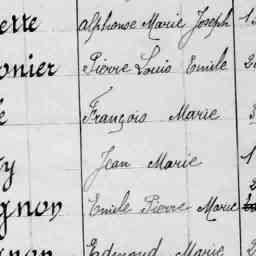 ette Alphonse Marie Joseph 1
onier Pierre Louis Emile 2
e François Marie 3
y Jean Marie 1
gnon Emile Pierre Marie 2
gnon Edmond Marie 2